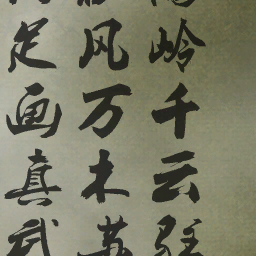 岭千云驻
风万木苏
足画真武